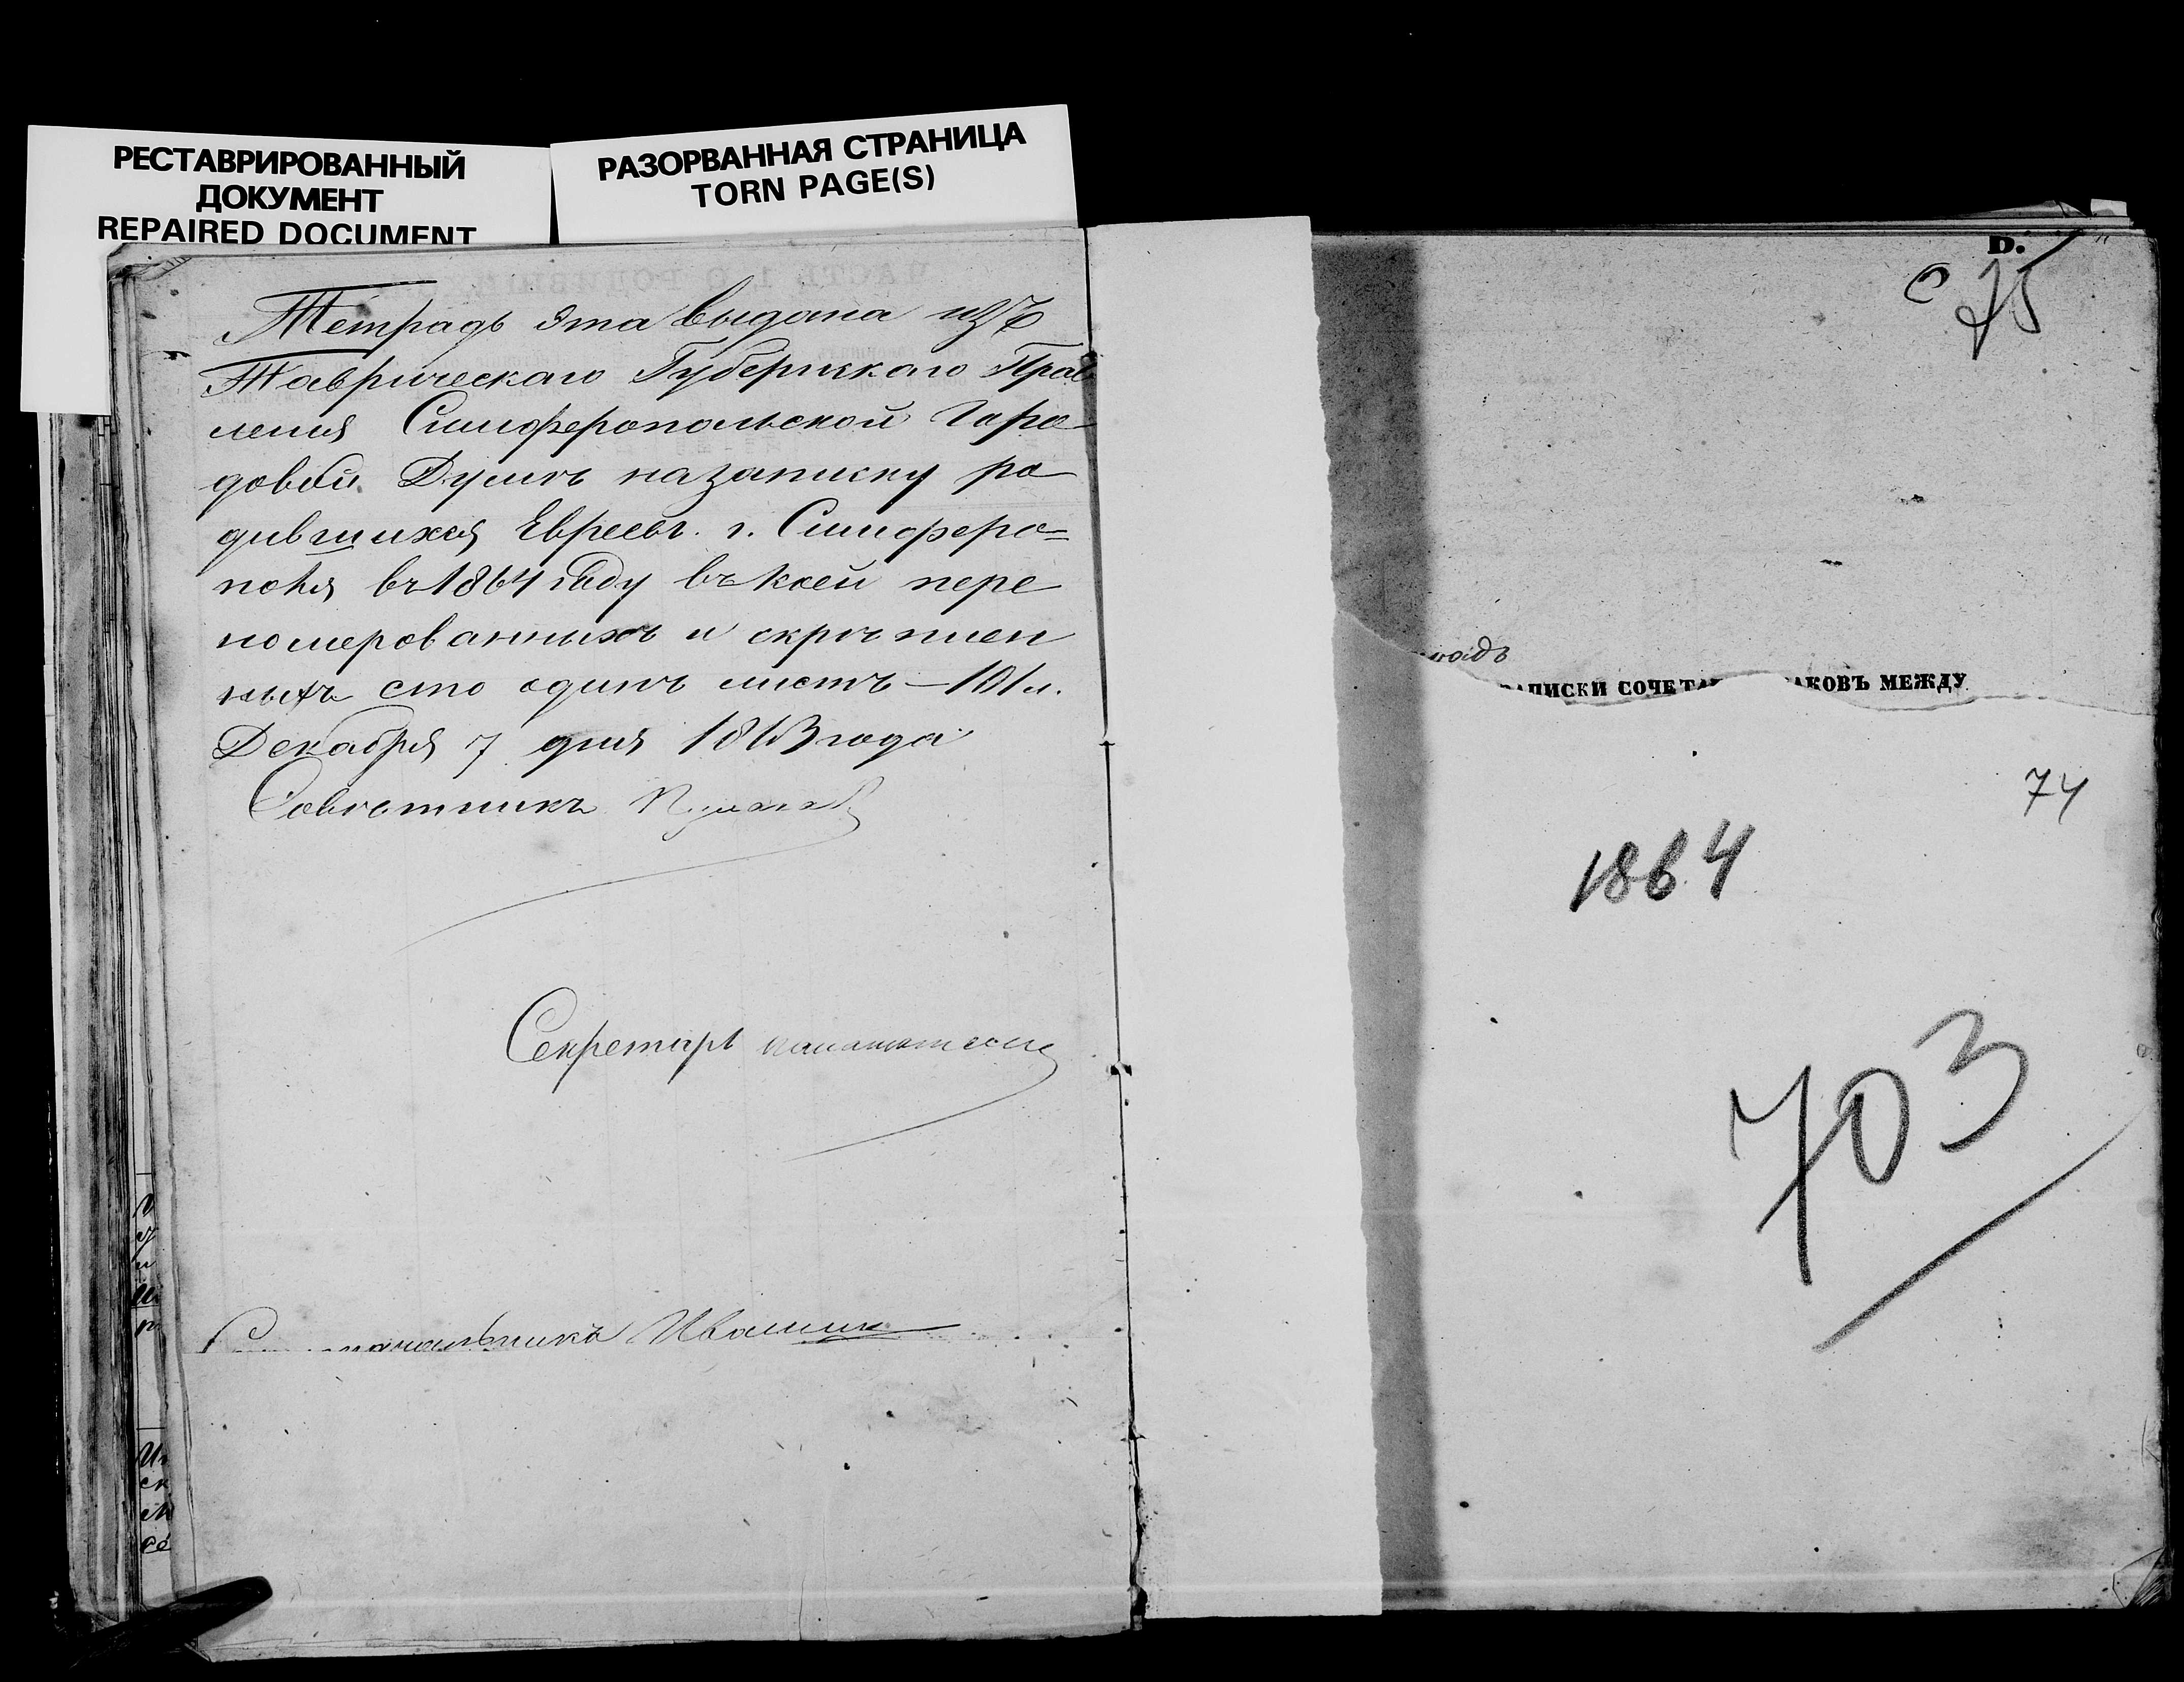 РЕСТАВРИРОВАННЫЙ
ДОКУМЕНТ
REPAIRED DOCUMENT
РАЗОРВАННАЯ СТРАНИЦА
TORN PAGE(S)
Тетрадь эта выдана изъ
Таврическаго Губернскаго Прав
ленія Симферопольской Горо
довой Думѣ на записку ро
дившихся Евреевъ г. Симферо=
поля въ 1864 году въ коей пере
номерованныхъ и скрѣплен
ныхъ сто одинъ листъ — 101 л.
Декабря 7 дня 1863 года
Совѣтникъ
Секретарь
начальника
D.
75
АПИСКИ СОЧЕТА АКОВЪ МЕЖДУ
74
1864
703